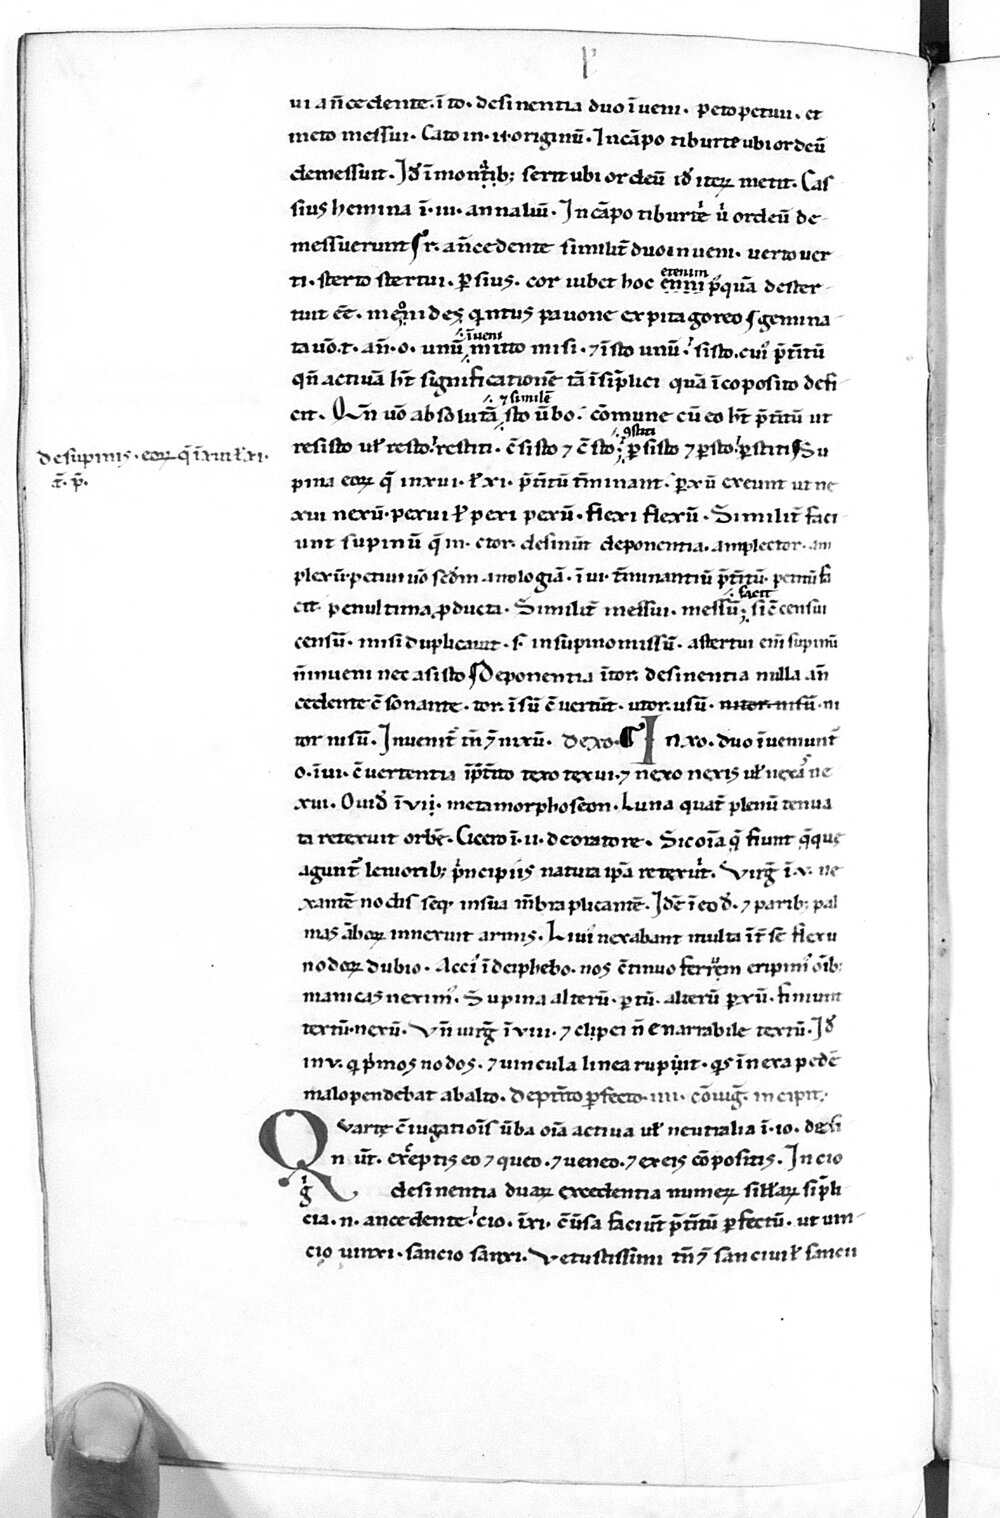 ui an̄cedente. ī to. desinentia duo īueni. peto petiui. et
meto messui. Cato in .ii. originū. In cāpo tiburte ubi ordeū
demessuit. Id̄ ī montib; serit ubi ordeū id̄ iterꝝ metit. Cas
sius hemina ī .iii. annaliū. In cāpo tiburte u ordeū de-
messuerunt. r. an̄cedente similit̄ duo inueni. uerto uer
ti. sterto stertui. ꝑsius. cor iubet hoc enni pꝰquā dester-
etenim
tuit eē. meonides quintus pauone ex pitagoreo. gemina
ta uō .t. an̄ .o. unū mitto misi. ⁊ ī sto unū. sisto. cuiꝰ p̄t̄itū
īueni
qn̄ actiuā h̄t significationē tā ī simplici quā ī cōposito defi
cit. Qn̄ uō absolutā sto ūbo cōmune cū eo h̄t p̄t̄itū ut
⁊ similē
resisto ul̄ resto. restiti. c̄sisto ⁊ c̄sto. ꝑsisto ⁊ ꝑsto. ꝑstiti. Su
ꝯstiti
de supinis. eorꝝ q̄ ī xui ul̄ xi.
t̄. p̄.
pina eorꝝ q̄ in xui. ul̄ xi. p̄t̄itū t̄minant. ꝑ xū exeunt ut ne
xui nexū. pexui ul̄ pexi pexū. flexi flexū. Similit̄ faci
unt supinū q̄ in .ctor. desinūt deponentia. amplector. am
plexū. petiui uō sc̄dm anologiā. ī ui. t̄minantiū p̄t̄itū. petitū fa
cit. penultima ꝓducta. Similit̄ messui. messū; sic̄ censui
facit
censū. misi duplicauit .s. in supino missū. astertui eni supinū
n̄ inueni nec a sisto. Deponentia ī tor. desinentia nulla an̄
cedente c̄sonante. tor. ī sū c̄uertūt. utor. usū. nitor nisū. ni
tor nisū. Inuenit̄ tn̄ ⁊ nixū. de xo. In xo. duo īueniunt̄
o. ī ui. c̄uertentia ī p̄t̄ito texo texui. ⁊ nexo nexis ul̄ nexas ne
xui. Ouid̄ ī vii. metamorphoseon. Luna quat̄ plenū tenua
ta retexuit orbē. Cicero ī .ii. de oratore. Sic oīa q̄ fiunt q̄que
agunt̄ leuiorib; p̄ncipiis natura ipa retexuit. Virḡ ī .v. ne
xantē nodis seq; in sua mēbra plicantē. Idē ī eod̄. ⁊ parib; pal
mas āborꝝ innexuit armis. Liui nexabant multa īt̄ se flexu
nodorꝝ dubio. Acciꝰ ī deiphebo. nos c̄tinuo ferrem eripimꝰ oīb;
manicas neximꝰ. Supina alterū. ꝑ tū. alterū ꝑ xū. finiunt
textū. nexū. Vn̄ uirḡ ī viii. ⁊ clipei n̄ enarrabile textū. Id̄
in v. q pimos nodos. ⁊ uincula linea rupit. qs īnexa pedē
malo pendebat ab alto. de p̄t̄ito ꝑfecto .iiii. cōiug. incipit.
Qvarte c̄iugatiōis ūba oīa actiua ul̄ neutralia ī .io. desi
n ūt. exceptis eo ⁊ queo. ⁊ ueneo. ⁊ ex eis cōpositis. In cio
desinentia duarꝝ excedentia numerꝝ sillarꝝ sipli
cia. n. ancedente. cio. ī xi. c̄uersa faciūt p̄t̄itū ꝑfectū. ut uin-
cio uinxi. sancio sanxi. Vetustissimi tn̄ ⁊ sanciui ul̄ sancii